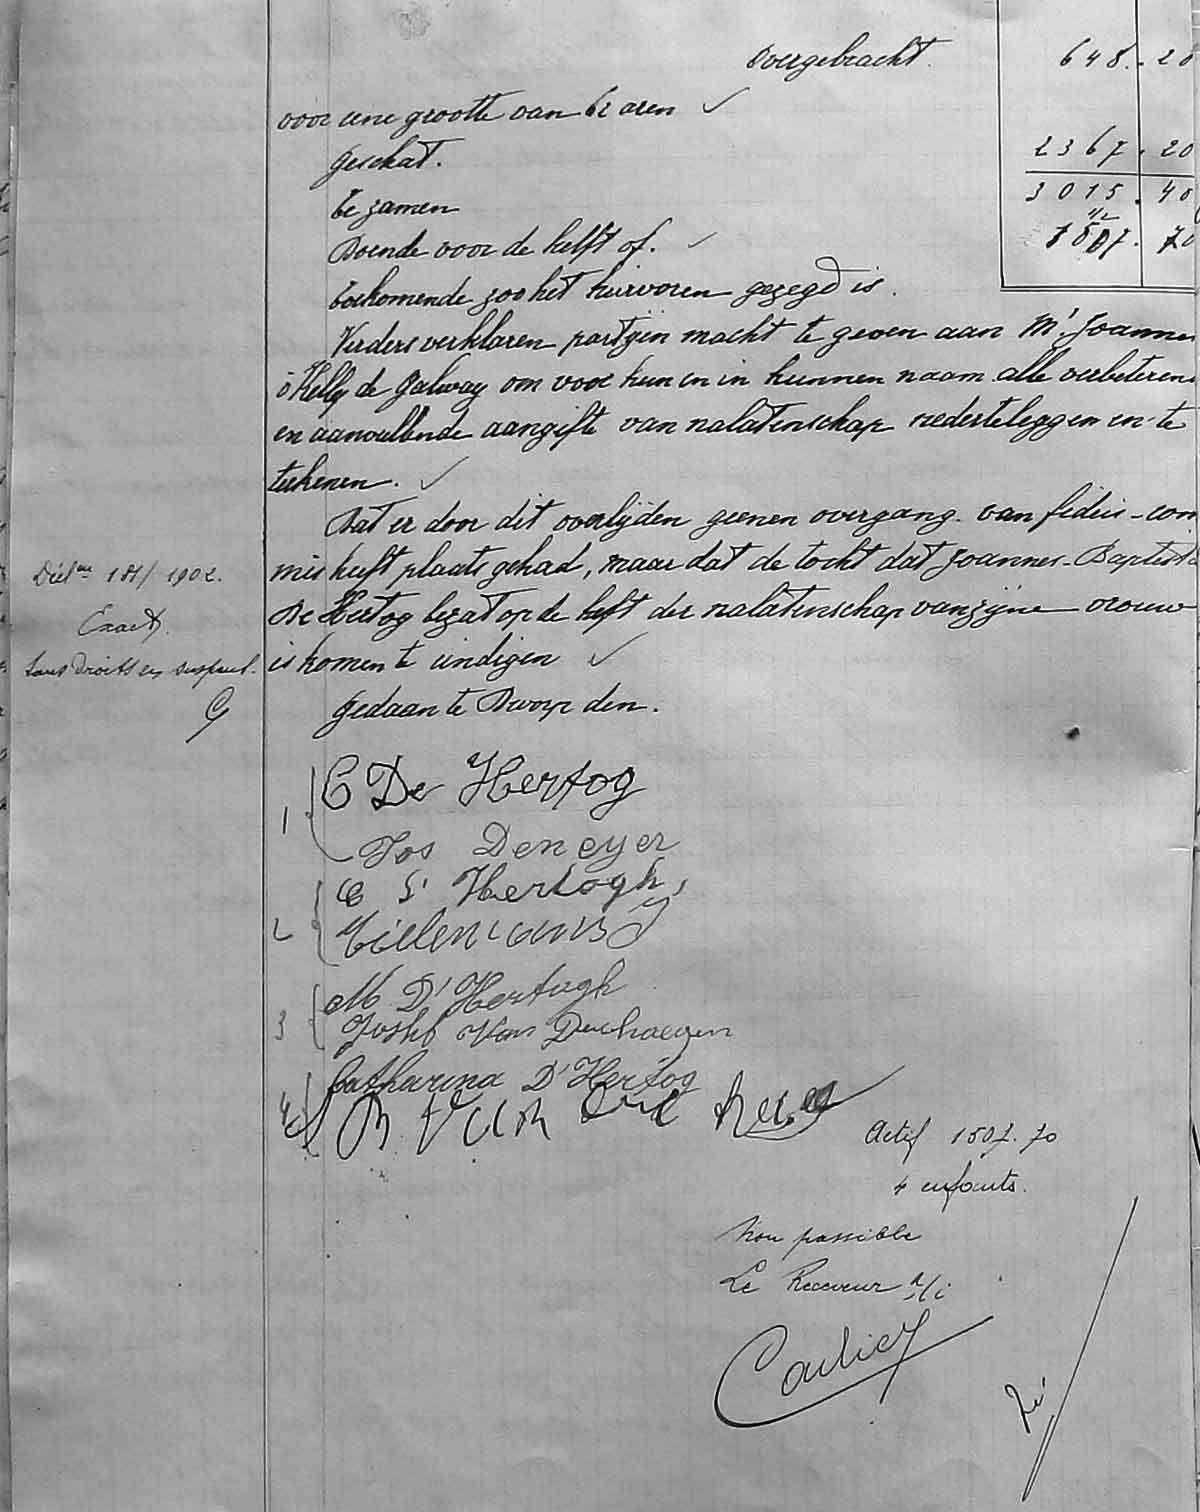 Overgebracht. 648.20
voor eene grootte van 62 aren ✓
geschat. 2367.20
te zamen 3015.40
Doende voor de helft of. ✓ 1/2 1507.70
toekomende zoo het hiervoren gezegd is.
Verders verklaren partijen macht te geven aan Mr Joannes
o'Kelly de Galway om voor hun en in hunnen naam alle verbeteren
en aanvullende aangifte van nalatenschap neder te leggen en te
teekenen. ✓
Dat er door dit overlijden geenen overgang van fideis-com
mis heeft plaats gehad, maar dat de tocht dat Joannes-Baptista
De Hertog bezat op de helft der nalatenschap van zijne vrouw
is komen te eindigen ✓
Décl on 181/1902.
Exact.
sans droits en suspens.
gedaan te Dworp den.
1 C De Hertog
Jos Deneyer
2 C D'Hertogh,
Tielemans J
3 M D'Hertogh
Joseph Van
4 Catharina D'Hertog
Van
Actif 1507.70
4 enfants.
Non passible
Le Receveur a/i
Carlier